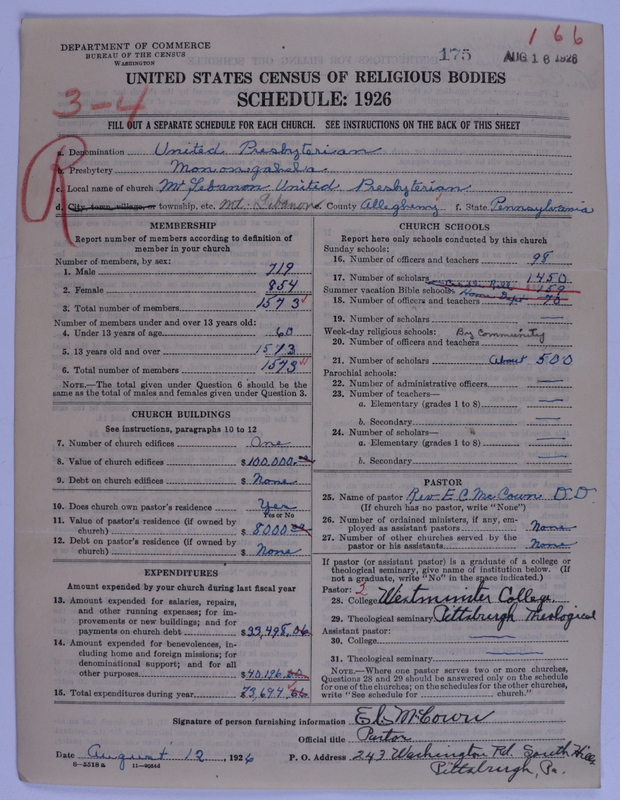 166
175
AUG 16 1926
DEPARTMENT OF COMMERCE
BUREAU OF THE CENSUS
WASHINGTON
UNITED STATES CENSUS OF RELIGIOUS BODIES
SCHEDULE: 1926
3-4
R
FILL OUT A SEPARATE SCHEDULE FOR EACH CHURCH. SEE INSTRUCTIONS ON THE BACK OF THIS SHEET
a. Denomination United Presbyterian
b. Presbytery Monongahela
c. Local name of church Mt Lebanon United Presbyterian
d. City, town, village, or township, etc. Mt. Lebanon. County Allegheny f. State Pennsylvania
MEMBERSHIP
Report number of members according to definition of member in your church
Number of members, by sex:
1. Male 719
2. Female 854
3. Total number of members 1573
Number of members under and over 13 years old:
4. Under 13 years of age 60
5. 13 years old and over 1573
6. Total number of members 1573
NOTE.—The total given under Question 6 should be the same as the total of males and females given under Question 3.
CHURCH BUILDINGS
See instructions, paragraphs 10 to 12
7. Number of church edifices One
8. Value of church edifices $100,000.00
9. Debt on church edifices $None
10. Does church own pastor's residence Yes
Yes or No
11. Value of pastor's residence (if owned by church) $8000.00
12. Debt on pastor's residence (if owned by church) $None
EXPENDITURES
Amount expended by your church during last fiscal year
13. Amount expended for salaries, repairs, and other running expenses; for improvements or new buildings; and for payments on church debt $33,498.06
14. Amount expended for benevolences, including home and foreign missions; for denominational support; and for all other purposes $40,196.00
15. Total expenditures during year $73,694.06
CHURCH SCHOOLS
Report here only schools conducted by this church
Sunday schools:
16. Number of officers and teachers 98
17. Number of scholars 1450
Summer vacation Bible schools: 150
Home Dept
18. Number of officers and teachers 70
19. Number of scholars —
Week-day religious schools: By Community
20. Number of officers and teachers
21. Number of scholars About 500
Parochial schools:
22. Number of administrative officers —
23. Number of teachers—
a. Elementary (grades 1 to 8) —
b. Secondary —
24. Number of scholars—
a. Elementary (grades 1 to 8) —
b. Secondary —
PASTOR
25. Name of pastor Rev. E.C. McCown D.D.
(If church has no pastor, write "None")
26. Number of ordained ministers, if any, employed as assistant pastors None
27. Number of other churches served by the pastor or his assistants None
If pastor (or assistant pastor) is a graduate of a college or theological seminary, give name of institution below. (If not a graduate, write "No" in the space indicated.)
Pastor: 3
28. College Westminster College
29. Theological seminary Pittsburgh Theological
Assistant pastor:
30. College —
31. Theological seminary —
NOTE.—Where one pastor serves two or more churches, Questions 28 and 29 should be answered only on the schedule for one of the churches; on the schedules for the other churches, write "See schedule for church."
Signature of person furnishing information E.C. McCown
Official title Pastor
Date August 12, 1926
P. O. Address 243 Washington Rd. South Hills
Pittsburgh, Pa.
8—5318 a